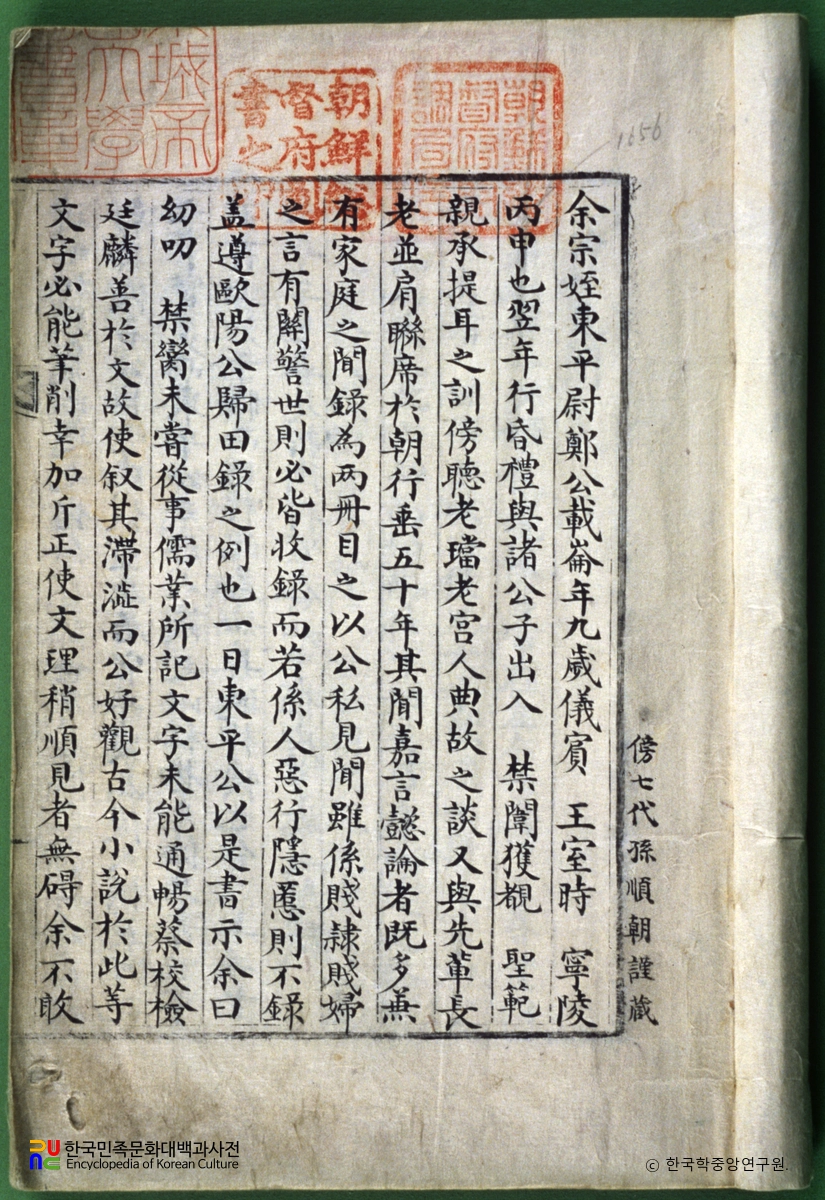 余宗姪東平尉鄭公載崙年九歲儀賓 王室時 寧陵
丙申也翌年行昏禮與諸公子出入 禁闈獲覩 聖範
親承提耳之訓傍聽老璫老宮人典故之談又與先輩長
老並肩聯席於朝行垂五十年其聞嘉言懿論者旣多兼
有家庭之聞錄為兩冊目之以公私見聞雖係賤隷賤婦
之言有關警世則必皆收錄而若係人惡行隱慝則不錄
盖遵歐陽公歸田錄之例也一日東平公以是書示余曰
幼叨 禁臠未嘗從事儒業所記文字未能通暢蔡校檢
廷麟善於文故使叙其滯澁而公好觀古今小說於此等
文字必能筆削幸加斤正使文理稍順見者無碍余不敢
傍七代孫順朝謹藏
朝鮮總
督府圖
書之
1656
한국민족문화대백과사전
Encyclopedia of Korean Culture
© 한국학중앙연구원.